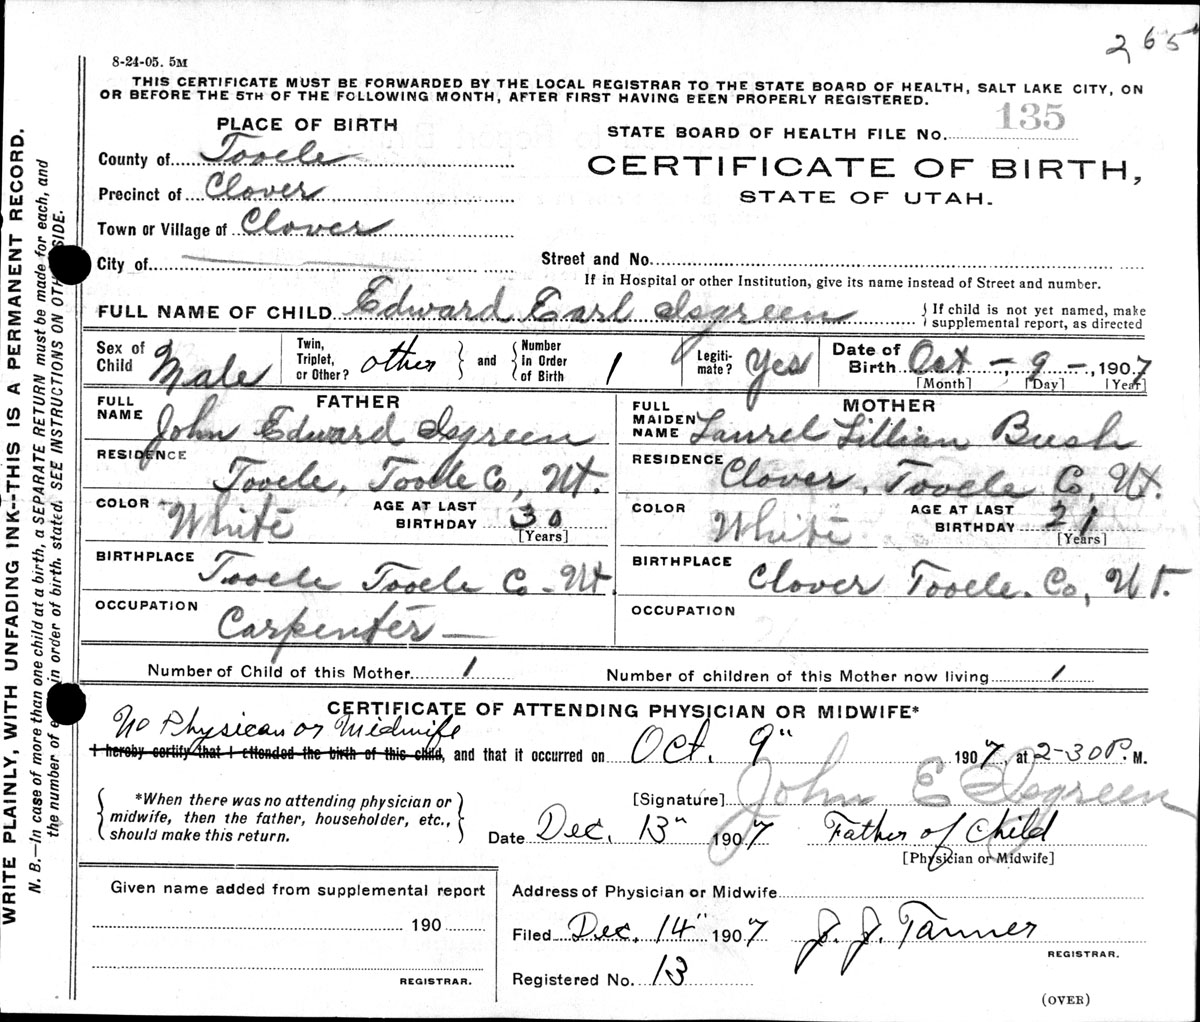 265
8-24-05. 5M
THIS CERTIFICATE MUST BE FORWARDED BY THE LOCAL REGISTRAR TO THE STATE BOARD OF HEALTH, SALT LAKE CITY, ON
OR BEFORE THE 5TH OF THE FOLLOWING MONTH, AFTER FIRST HAVING BEEN PROPERLY REGISTERED.
PLACE OF BIRTH
County of Tooele
Precinct of Clover
Town or Village of Clover
City of
STATE BOARD OF HEALTH FILE No. 135
CERTIFICATE OF BIRTH,
STATE OF UTAH.
Street and No.
If in Hospital or other Institution, give its name instead of Street and number.
FULL NAME OF CHILD Edward Earl Isgreen { If child is not yet named, make
supplemental report, as directed
Sex of Child Male
Twin, Triplet, or Other? other } and { Number in Order of Birth 1
Legiti-mate? Yes
Date of Birth Oct - 9 -, 1907
[Month] [Day] [Year]
FATHER
FULL NAME John Edward Isgreen
RESIDENCE Tooele, Tooele Co, Ut.
COLOR White AGE AT LAST BIRTHDAY 30
[Years]
BIRTHPLACE Tooele Tooele Co - Ut.
OCCUPATION Carpenter —
MOTHER
FULL MAIDEN NAME Laurel Lillian Bush
RESIDENCE Clover, Tooele Co, Ut.
COLOR White AGE AT LAST BIRTHDAY 21
[Years]
BIRTHPLACE Clover Tooele. Co, Ut.
OCCUPATION
Number of Child of this Mother 1
Number of children of this Mother now living 1
CERTIFICATE OF ATTENDING PHYSICIAN OR MIDWIFE*
No Physican or Midwife
I hereby certify that I attended the birth of this child, and that it occurred on Oct. 9" 1907, at 2-30 P. M.
{ *When there was no attending physician or
midwife, then the father, householder, etc.,
should make this return. }
[Signature] John E Isgreen
Date Dec. 13" 1907 Father of Child
[Physician or Midwife]
Given name added from supplemental report
190
REGISTRAR.
Address of Physician or Midwife
Filed Dec. 14" 1907 J. J. Tanner
REGISTRAR.
Registered No. 13
(OVER)
WRITE PLAINLY, WITH UNFADING INK--THIS IS A PERMANENT RECORD.
N. B.—In case of more than one child at a birth, a SEPARATE RETURN must be made for each, and
the number of in order of birth, stated. SEE INSTRUCTIONS ON SIDE.